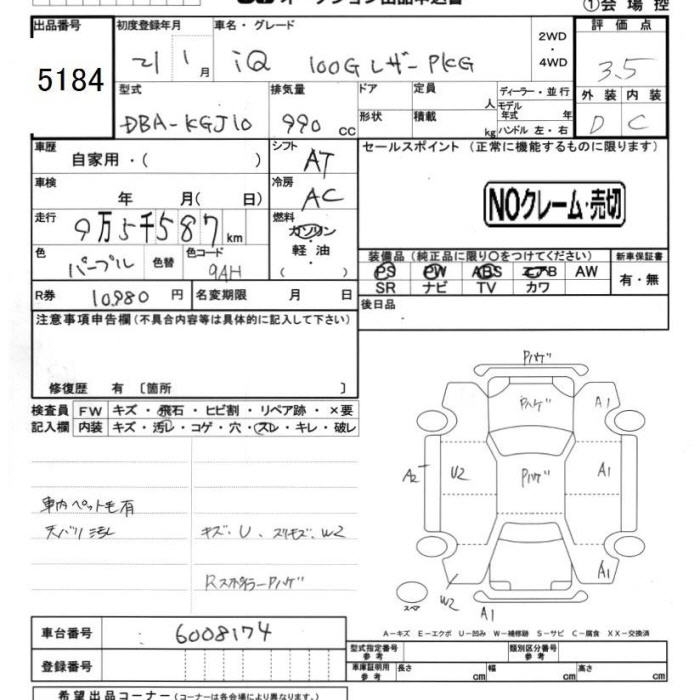 オークション出品申込書
①会場控
出品番号 5184
初度登録年月 21 1月
車名・グレード iQ 100G レザーPKG
2WD・4WD
評価点 3.5
外装 D 内装 C
型式 DBA-KGJ10
排気量 990 cc
ドア 形状
定員 人
積載 kg
ディーラー・並行
モデル年式 年
ハンドル 左・右
車歴 自家用・( )
シフト AT
車検 年 月( 日)
冷房 AC
走行 9万5千587 km
燃料 ガソリン 軽油・( )
色 パープル 色替
色コード 9AH
R券 10,980 円
名変期限 月 日
セールスポイント(正常に機能するものに限ります)
NOクレーム・売切
装備品(純正品に限り○をつけてください)
PS PW ABS エアB AW
SR ナビ TV カワ
新車保証書 有・無
後日品
注意事項申告欄(不具合内容等は具体的に記入して下さい)
修復歴 有 〔箇所 〕
検査員記入欄
FW キズ・飛石・ヒビ割・リペア跡・×要
内装 キズ・汚レ・コゲ・穴・スレ・キレ・破レ
車内ペット毛有
天バリ汚れ
キズ・U・スリキズ・W2
RスポイラーPハゲ
Pハゲ
Pハゲ
A1
A2
U2
Pハゲ
A1
A1
W2
スペア
A1
A-キズ E-エクボ U-凹み W-補修跡 S-サビ C-腐食 XX-交換済
車台番号 6008174
登録番号
型式指定番号 参考
類別区分番号 参考
車庫証明用 参考
長さ cm 幅 cm 高さ cm
希望出品コーナー(コーナーは各会場により異なります。)